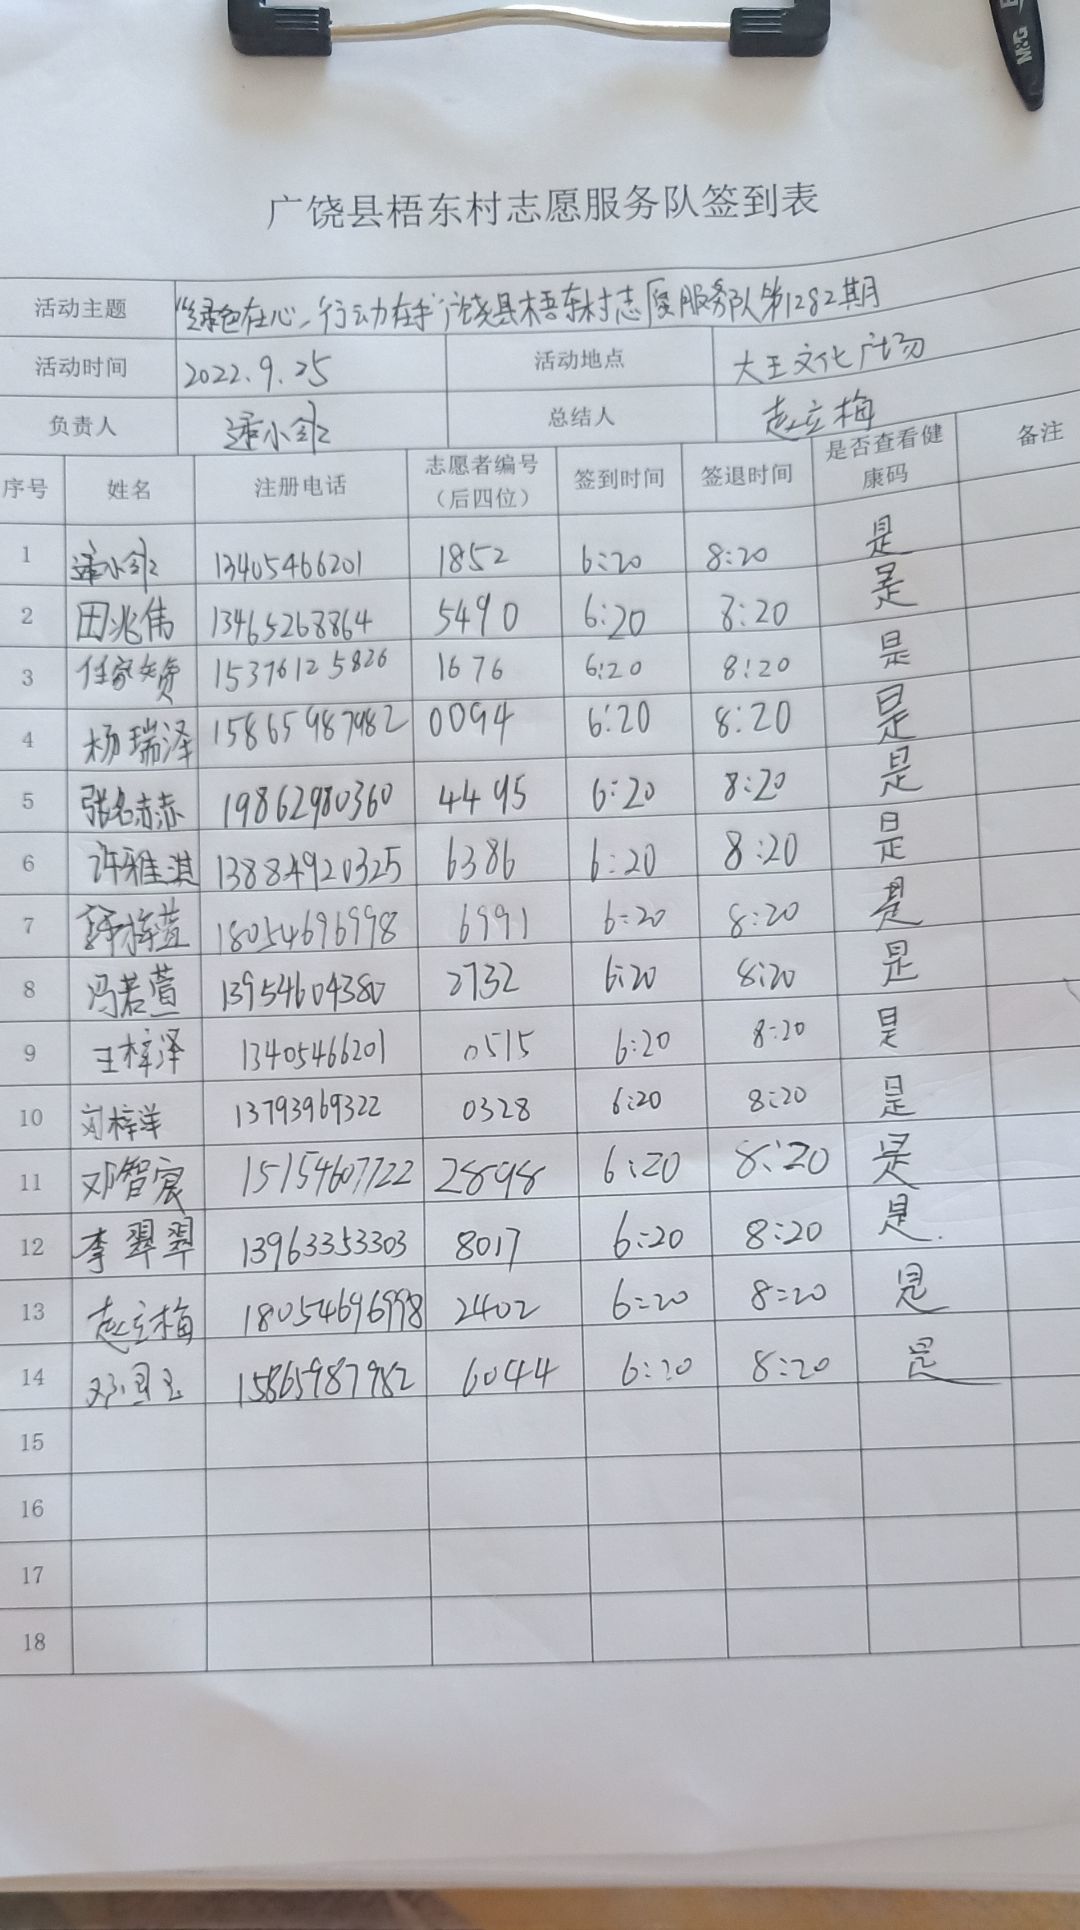 M&G
广饶县梧东村志愿服务队签到表
活动主题 "绿色在心，行动在手"广饶县梧东村志愿服务队第1282期
活动时间 2022.9.25 活动地点 大王文化广场
负责人 总结人 赵立梅
序号 姓名 注册电话 志愿者编号（后四位） 签到时间 签退时间 是否查看健康码 备注
1 13405466201 1852 6:20 8:20 是
2 田兆伟 13465268864 5490 6:20 8:20 是
3 任家贤 15376125826 1676 6:20 8:20 是
4 杨瑞泽 15865987982 0094 6:20 8:20 是
5 张名赫 19862980360 4495 6:20 8:20 是
6 许雅淇 13884920325 6386 6:20 8:20 是
7 梓萱 18054696998 6991 6:20 8:20 是
8 冯若萱 13954604380 2732 6:20 8:20 是
9 王梓泽 13405466201 0515 6:20 8:20 是
10 刘梓洋 13793969322 0328 6:20 8:20 是
11 邓智宸 15154607722 2898 6:20 8:20 是
12 李翠翠 13963353303 8017 6:20 8:20 是
13 赵立梅 18054696998 2402 6:20 8:20 是
14 15865987982 6044 6:20 8:20 是
15
16
17
18